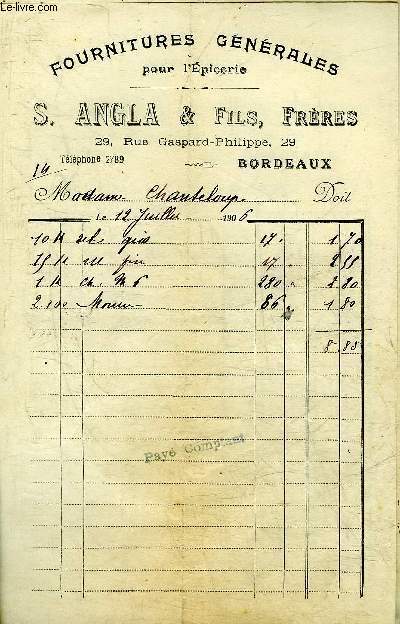 Le-livre.com
FOURNITURES GÉNÉRALES
pour l'Épicerie
S. ANGLA & FILS, FRÈRES
29, Rue Gaspard-Philippe, 29
Téléphone 2789
BORDEAUX
14
Madame Chanteloup Doit
le 12 Juillet 1906
10 K sel gros 17 1.70
15 K sel fin 17 2 55
1 K Ch. M 6 280 2 80
2.100 86 1 80
8.85
Payé Comptant